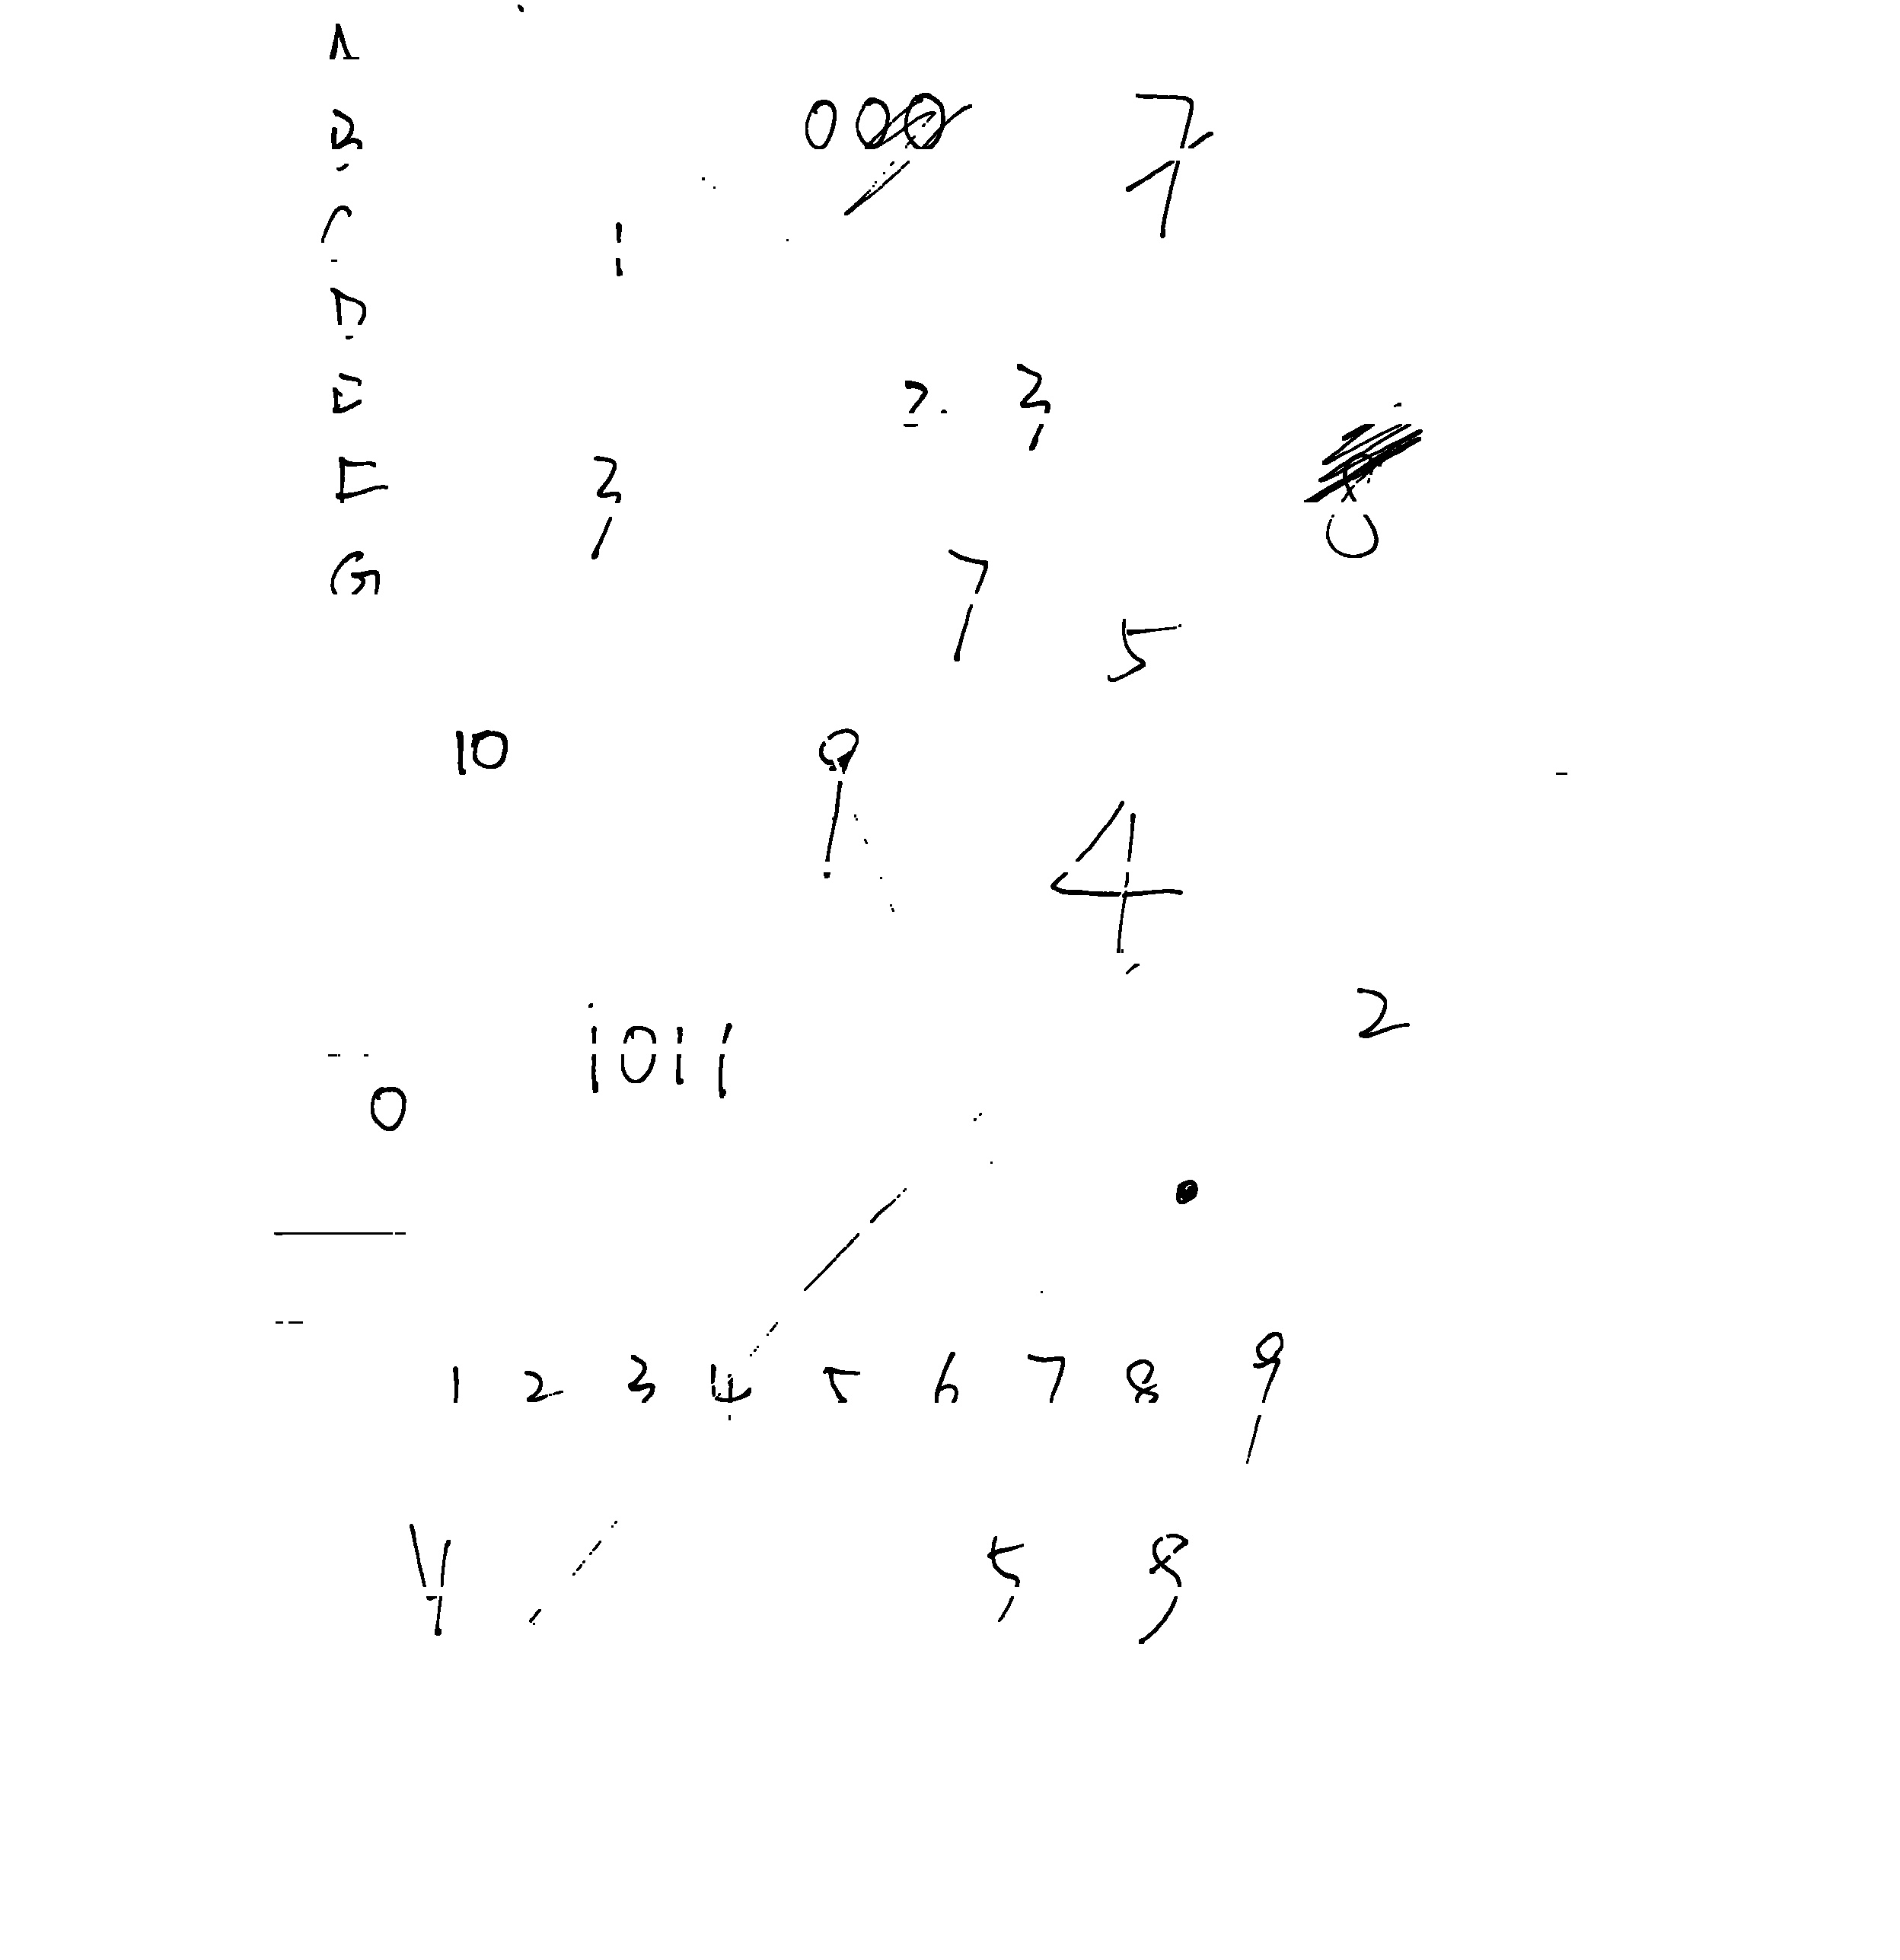 A
B 0 7
C 1
D
E 2. 3
F 3 8
G 7 5
10 9
4
1011 2
0
1 2 3 4 5 6 7 8 9
4 5 8